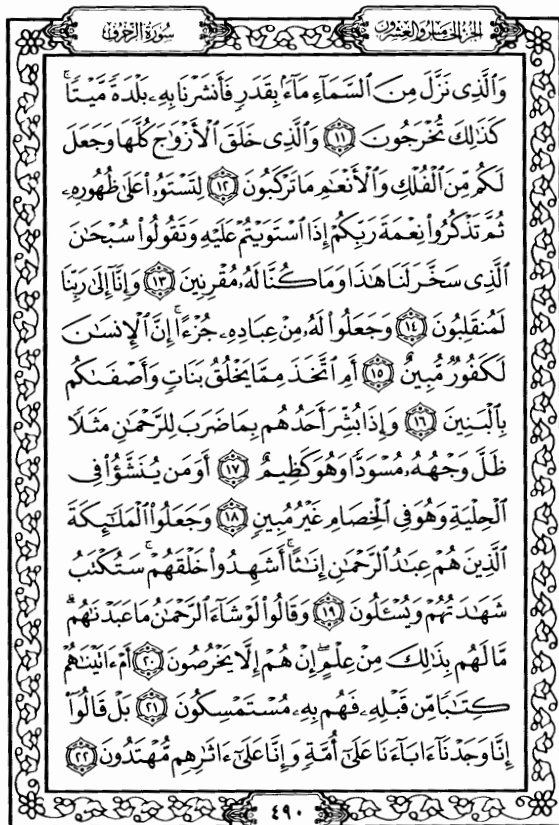 الجزء الخامس والعشرون
سورة الزخرف
وَالَّذِى نَزَّلَ مِنَ السَّمَآءِ مَآءَۢ بِقَدَرٍ فَأَنشَرْنَا بِهِۦ بَلْدَةً مَّيْتًا ۚ
كَذَٰلِكَ تُخْرَجُونَ ﴿١١﴾ وَالَّذِى خَلَقَ الْأَزْوَٰجَ كُلَّهَا وَجَعَلَ
لَكُم مِّنَ الْفُلْكِ وَالْأَنْعَٰمِ مَا تَرْكَبُونَ ﴿١٢﴾ لِتَسْتَوُۥا۟ عَلَىٰ ظُهُورِهِۦ
ثُمَّ تَذْكُرُوا۟ نِعْمَةَ رَبِّكُمْ إِذَا اسْتَوَيْتُمْ عَلَيْهِ وَتَقُولُوا۟ سُبْحَٰنَ
الَّذِى سَخَّرَ لَنَا هَٰذَا وَمَا كُنَّا لَهُۥ مُقْرِنِينَ ﴿١٣﴾ وَإِنَّآ إِلَىٰ رَبِّنَا
لَمُنقَلِبُونَ ﴿١٤﴾ وَجَعَلُوا۟ لَهُۥ مِنْ عِبَادِهِۦ جُزْءًا ۚ إِنَّ الْإِنسَٰنَ
لَكَفُورٌ مُّبِينٌ ﴿١٥﴾ أَمِ اتَّخَذَ مِمَّا يَخْلُقُ بَنَاتٍ وَأَصْفَىٰكُم
بِالْبَنِينَ ﴿١٦﴾ وَإِذَا بُشِّرَ أَحَدُهُم بِمَا ضَرَبَ لِلرَّحْمَٰنِ مَثَلًا
ظَلَّ وَجْهُهُۥ مُسْوَدًّا وَهُوَ كَظِيمٌ ﴿١٧﴾ أَوَمَن يُنَشَّؤُا۟ فِى
الْحِلْيَةِ وَهُوَ فِى الْخِصَامِ غَيْرُ مُبِينٍ ﴿١٨﴾ وَجَعَلُوا۟ الْمَلَٰٓئِكَةَ
الَّذِينَ هُمْ عِبَٰدُ الرَّحْمَٰنِ إِنَٰثًا ۚ أَشَهِدُوا۟ خَلْقَهُمْ ۚ سَتُكْتَبُ
شَهَٰدَتُهُمْ وَيُسْـَٔلُونَ ﴿١٩﴾ وَقَالُوا۟ لَوْ شَآءَ الرَّحْمَٰنُ مَا عَبَدْنَٰهُم ۗ
مَّا لَهُم بِذَٰلِكَ مِنْ عِلْمٍ ۖ إِنْ هُمْ إِلَّا يَخْرُصُونَ ﴿٢٠﴾ أَمْ ءَاتَيْنَٰهُمْ
كِتَٰبًا مِّن قَبْلِهِۦ فَهُم بِهِۦ مُسْتَمْسِكُونَ ﴿٢١﴾ بَلْ قَالُوٓا۟
إِنَّا وَجَدْنَآ ءَابَآءَنَا عَلَىٰٓ أُمَّةٍ وَإِنَّا عَلَىٰٓ ءَاثَٰرِهِم مُّهْتَدُونَ ﴿٢٢﴾
٤٩٠